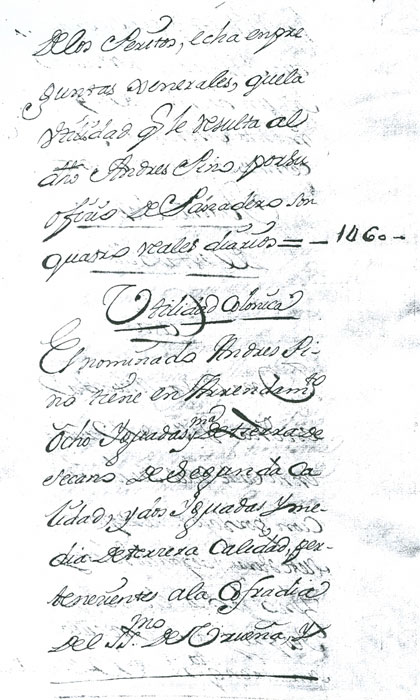 de los Peritos, echa en pre
guntas Generales, que la
Utilidad q.e le resulta al
dho Andres Pino por su
oficio de Panadero son
quatro reales diarios = - 1460 -
Utilidad Colonica
El nominado Andres Pi-
no tiene en Arrendam.to
Ocho Yguadas y m.a de tierra de
secano de segunda Ca
lidad, y dos Yguadas y me-
dia de terzera Calidad, per-
tenezientes a la Cofradia
del SS.mo de Urueña, y